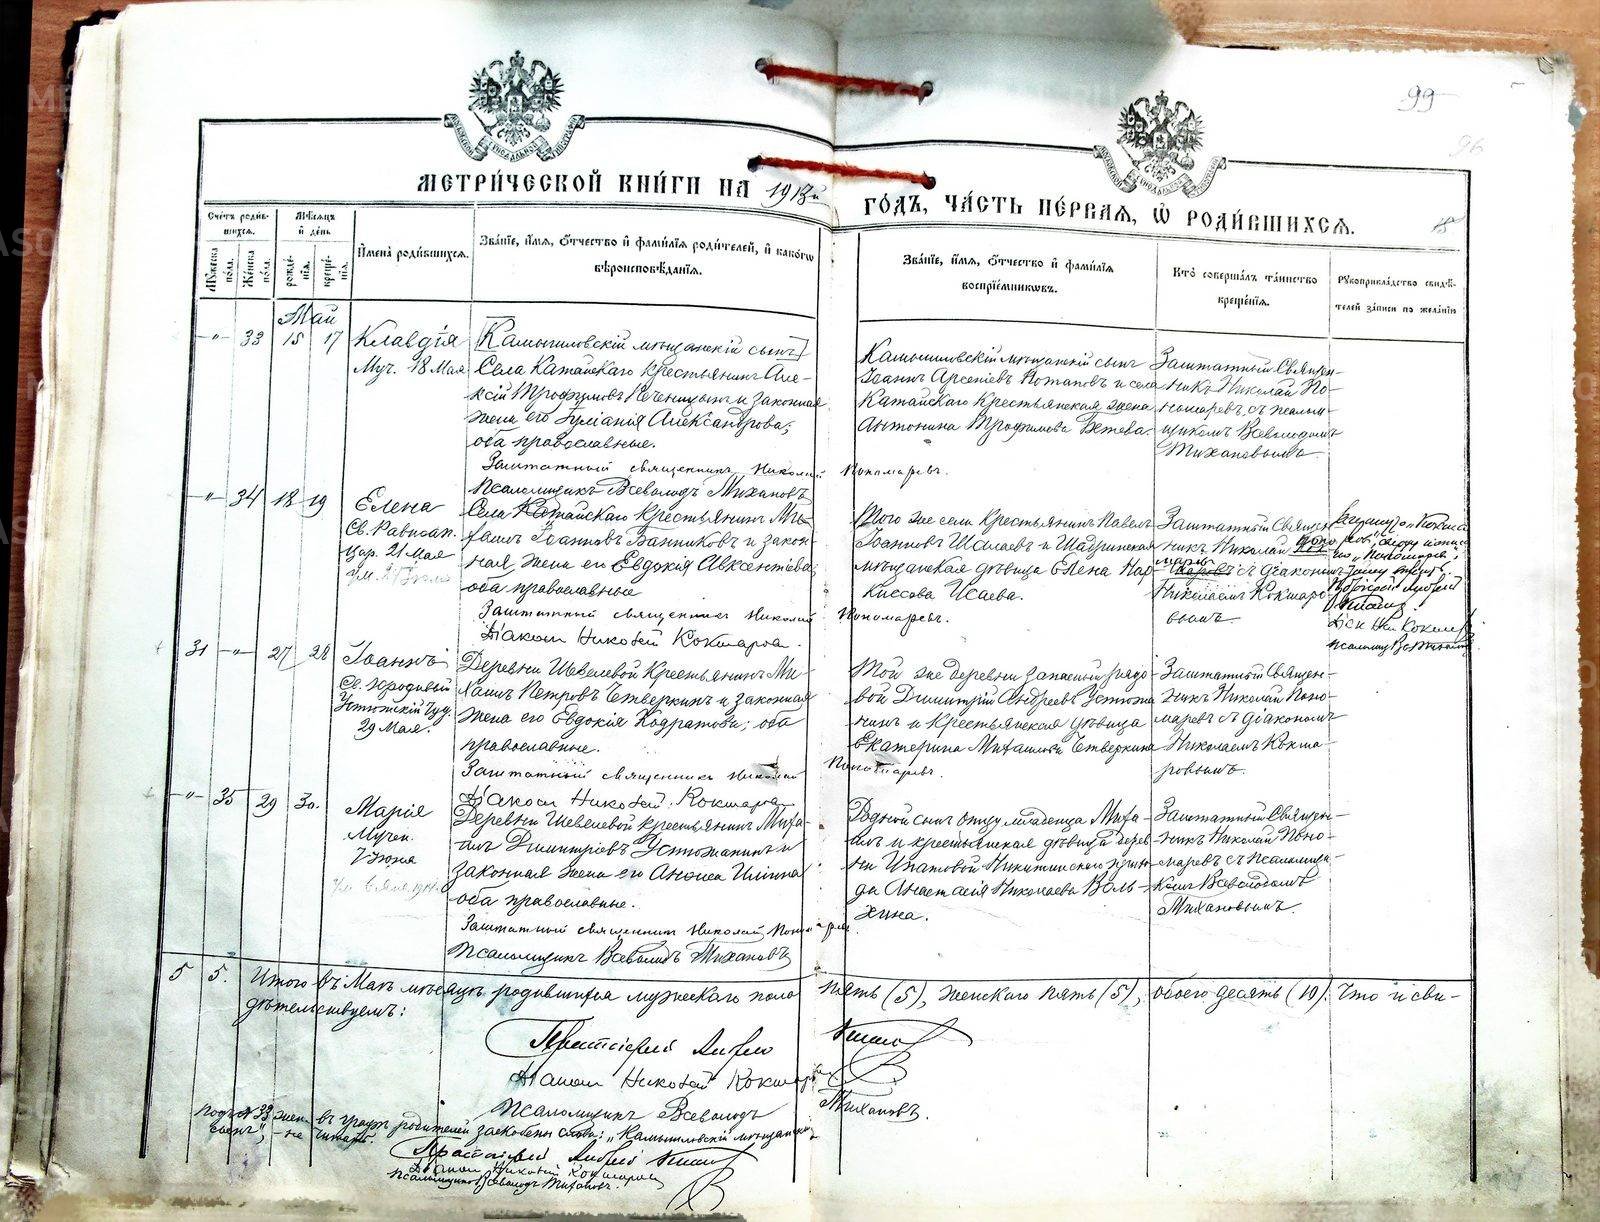 99
96
МЕТРИЧЕСКОЙ КНИГИ НА 1913й ГОДЪ, ЧАСТЬ ПЕРВАЯ, Ѡ РОДИВШИХСЯ.
Счетъ родив-
шихся.
Мѣсяцъ
и день
Мужеска
пола.
Женска
пола.
рожде-
нія.
креще-
нія.
Имена родившихся.
Званіе, имя, отчество и фамилія родителей, и какогѡ
вѣроисповѣданія.
Званіе, имя, отчество и фамилія
воспріемникѡвъ.
Кто совершалъ таинство
крещенія.
Рукоприкладство свидѣ-
телей записи по желанію
Май
-"- 33 15 17
Клавдія
Муч. 18 Мая
[Камышловскій мѣщанскій сынъ]
Села Катайскаго крестьянинъ Але-
ксій Трофимовъ Печеницынъ и законная
жена его Александрова;
оба православные.
Заштатный священникъ Николай Пономаревъ.
Псаломщикъ Всеволодъ Тихановъ
Камышловскій мѣщанскій сынъ
Іоаннъ Арсеніевъ Потаповъ и села
Катайскаго Крестьянская жена
Антонина Трофимова
Заштатный Священ-
никъ Николай По-
номаревъ, съ псалом-
щикомъ Всеволодомъ
Тихановымъ.
-"- 34 18 19
Елена
Св. Равноап.
Цар. 21 Мая
Села Катайскаго Крестьянинъ Ми-
хаилъ Іоанновъ Банниковъ и закон-
ная жена его Евдокія Авксентіева
оба православные
Заштатный священникъ Николай Пономаревъ.
Діаконъ Николай Кокшаровъ.
Того же села Крестьянинъ Павелъ
Іоанновъ Шалаевъ и Шадринская
мѣщанская дѣвица Елена Нар-
киссова Исаева.
Заштатный Священ-
никъ Николай Поно-
маревъ съ діакономъ
Николаемъ Кокшаро-
вымъ
31 -"- 27 28
Іоаннъ
Св. Юродивый
Устюжскій Чуд.
29 Мая.
Деревни Шевелевой Крестьянинъ Ми-
хаилъ Петровъ Четверкинъ и законная
жена его Евдокія Кодратова; оба
православные.
Заштатный священникъ Николай Пономаревъ.
Діаконъ Николай Кокшаровъ
Той же деревни запасный рядо-
вой Димитрій Андреевъ Устюжа-
нинъ и Крестьянская дѣвица
Екатерина Михаилова Четверкина
Заштатный Священ-
никъ Николай Поно-
маревъ съ діакономъ
Николаемъ Кокша-
ровымъ.
-"- 35 29 30.
Марія
Мучен.
7 Июня
Деревни Шевелевой крестьянинъ Миха-
илъ Димитріевъ Устюжанинъ и
законная жена его Анфиса Иліина
оба православные.
Заштатный священникъ Николай Пономаревъ
Псаломщикъ Всеволодъ Тихановъ
Родной сынъ отцу младенца Миха-
илъ и крестьянская дѣвица дерев-
ни Ипатовой Никитинскаго прихо-
да Анастасія Николаева Воль-
хина.
Заштатный Священ-
никъ Николай Поно-
маревъ съ псаломщи-
комъ Всеволодомъ
Тихановымъ.
5 5. Итого въ Маѣ мѣсяцѣ родившихся мужескаго пола пять (5), женскаго пять (5), обоего десять (10). Что и сви-
дѣтельствуемъ:
Протоіерей Андрей
Діаконъ Николай Кокшаровъ
Псаломщикъ Всеволодъ Тихановъ.
Подъ № 33 жен. въ графѣ родителей заскобены слова: "Камышловскій мѣщанскій
сынъ", - не читать.
Протоіерей Андрей
Діаконъ Николай Кокшаровъ
Псаломщикъ Всеволодъ Тихановъ.